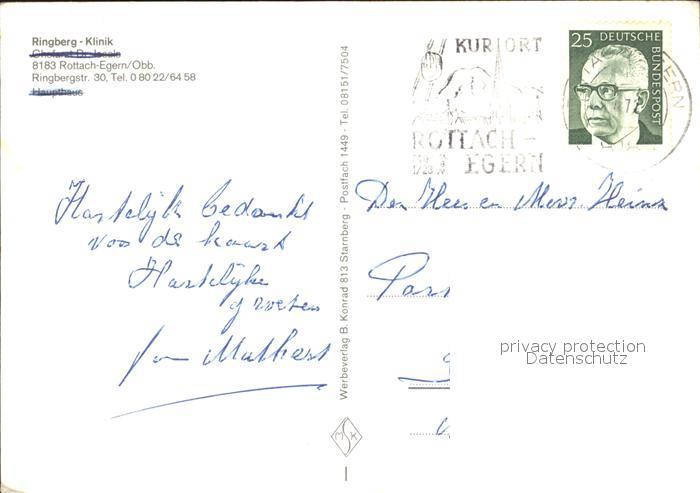 Ringberg - Klinik
8183 Rottach-Egern/Obb.
Ringbergstr. 30, Tel. 0 80 22/64 58
Haupthaus
Werbeverlag B. Konrad 813 Starnberg - Postfach 1449 - Tel. 08151/7504
KURORT
ROTTACH-
EGERN
25 DEUTSCHE
BUNDESPOST
Hartelijk bedankt
voor de kaart
Hartelijke
groeten
Den Heer en Mevr Heins
Par
privacy protection
Datenschutz
M S K